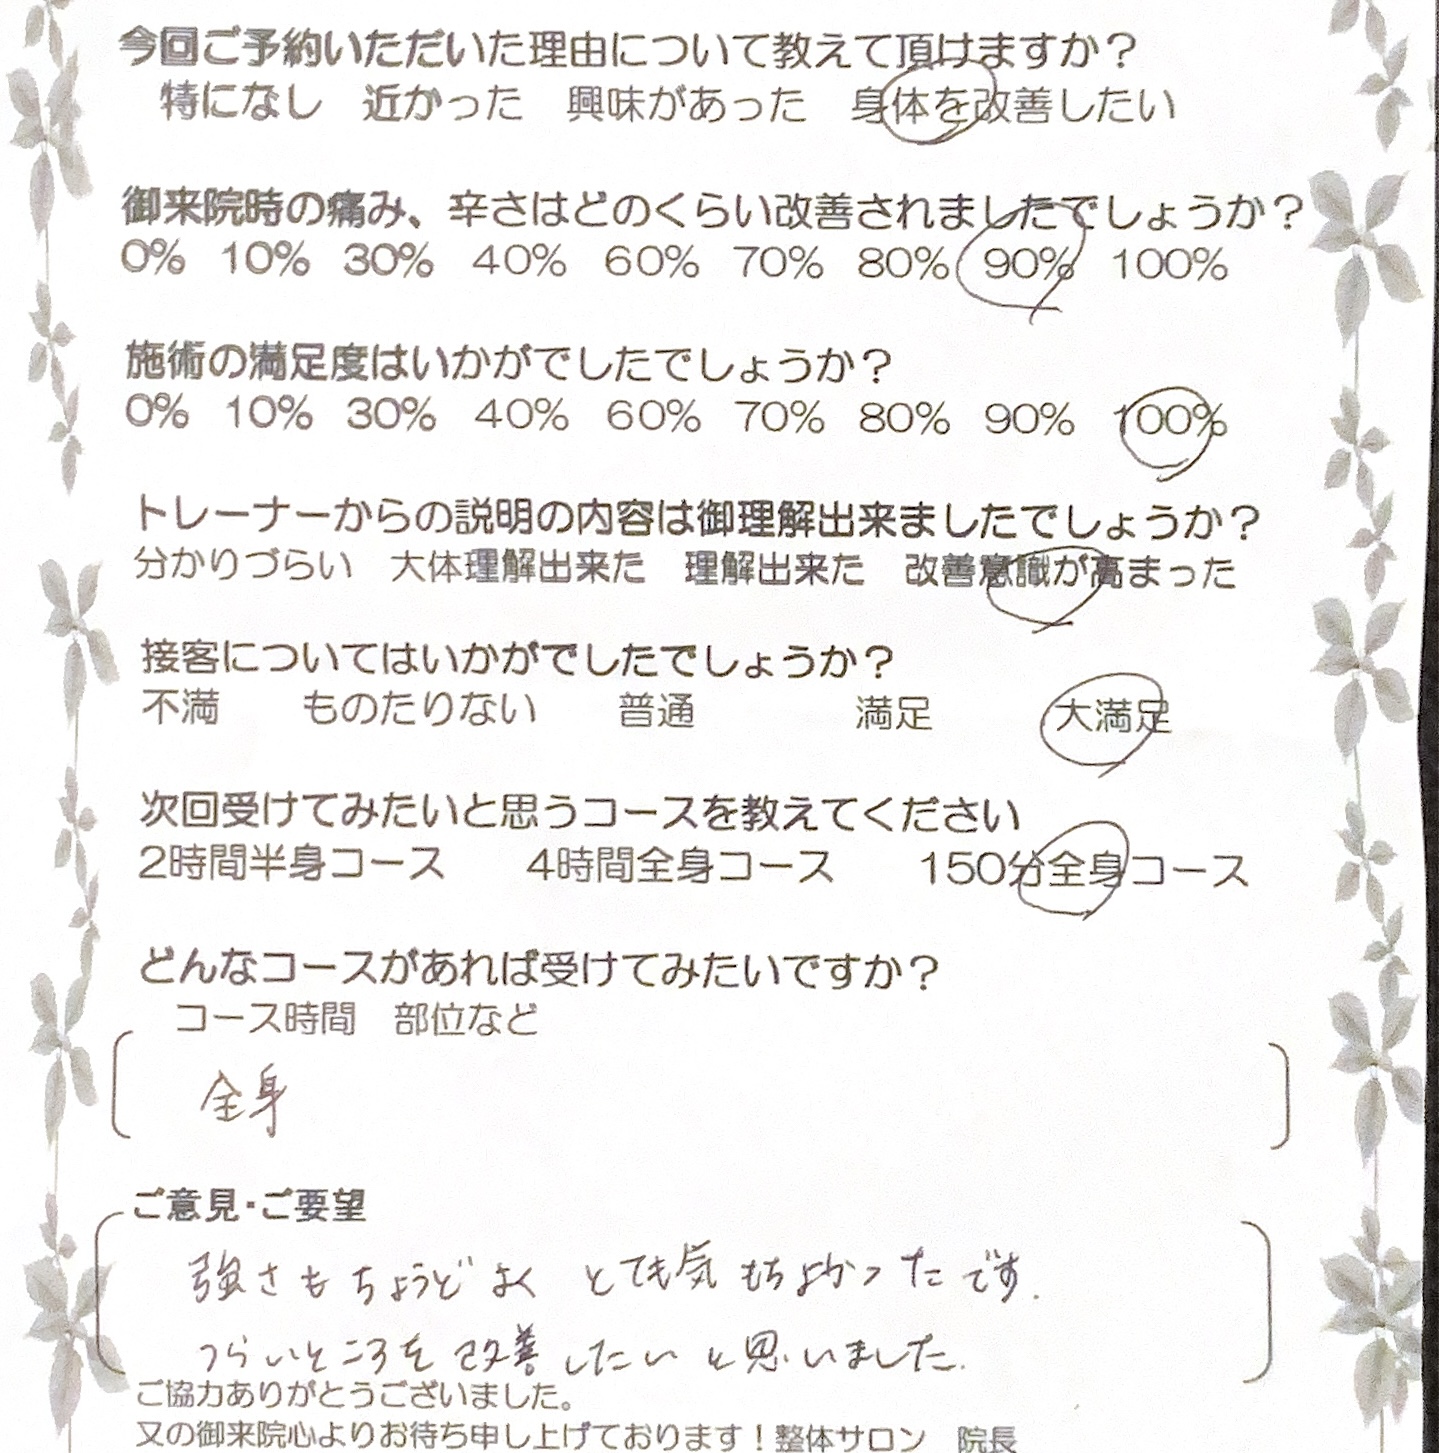 今回ご予約いただいた理由について教えて頂けますか？
特になし 近かった 興味があった 身体を改善したい
御来院時の痛み、辛さはどのくらい改善されましたでしょうか？
0% 10% 30% 40% 60% 70% 80% 90% 100%
施術の満足度はいかがでしたでしょうか？
0% 10% 30% 40% 60% 70% 80% 90% 100%
トレーナーからの説明の内容は御理解出来ましたでしょうか？
分かりづらい 大体理解出来た 理解出来た 改善意識が高まった
接客についてはいかがでしたでしょうか？
不満 ものたりない 普通 満足 大満足
次回受けてみたいと思うコースを教えてください
2時間半身コース 4時間全身コース 150分全身コース
どんなコースがあれば受けてみたいですか？
コース時間 部位など
全身
ご意見・ご要望
強さもちょうどよく とても気もちよかったです.
つらいところを改善したいと思いました.
ご協力ありがとうございました。
又の御来院心よりお待ち申し上げております！整体サロン 院長